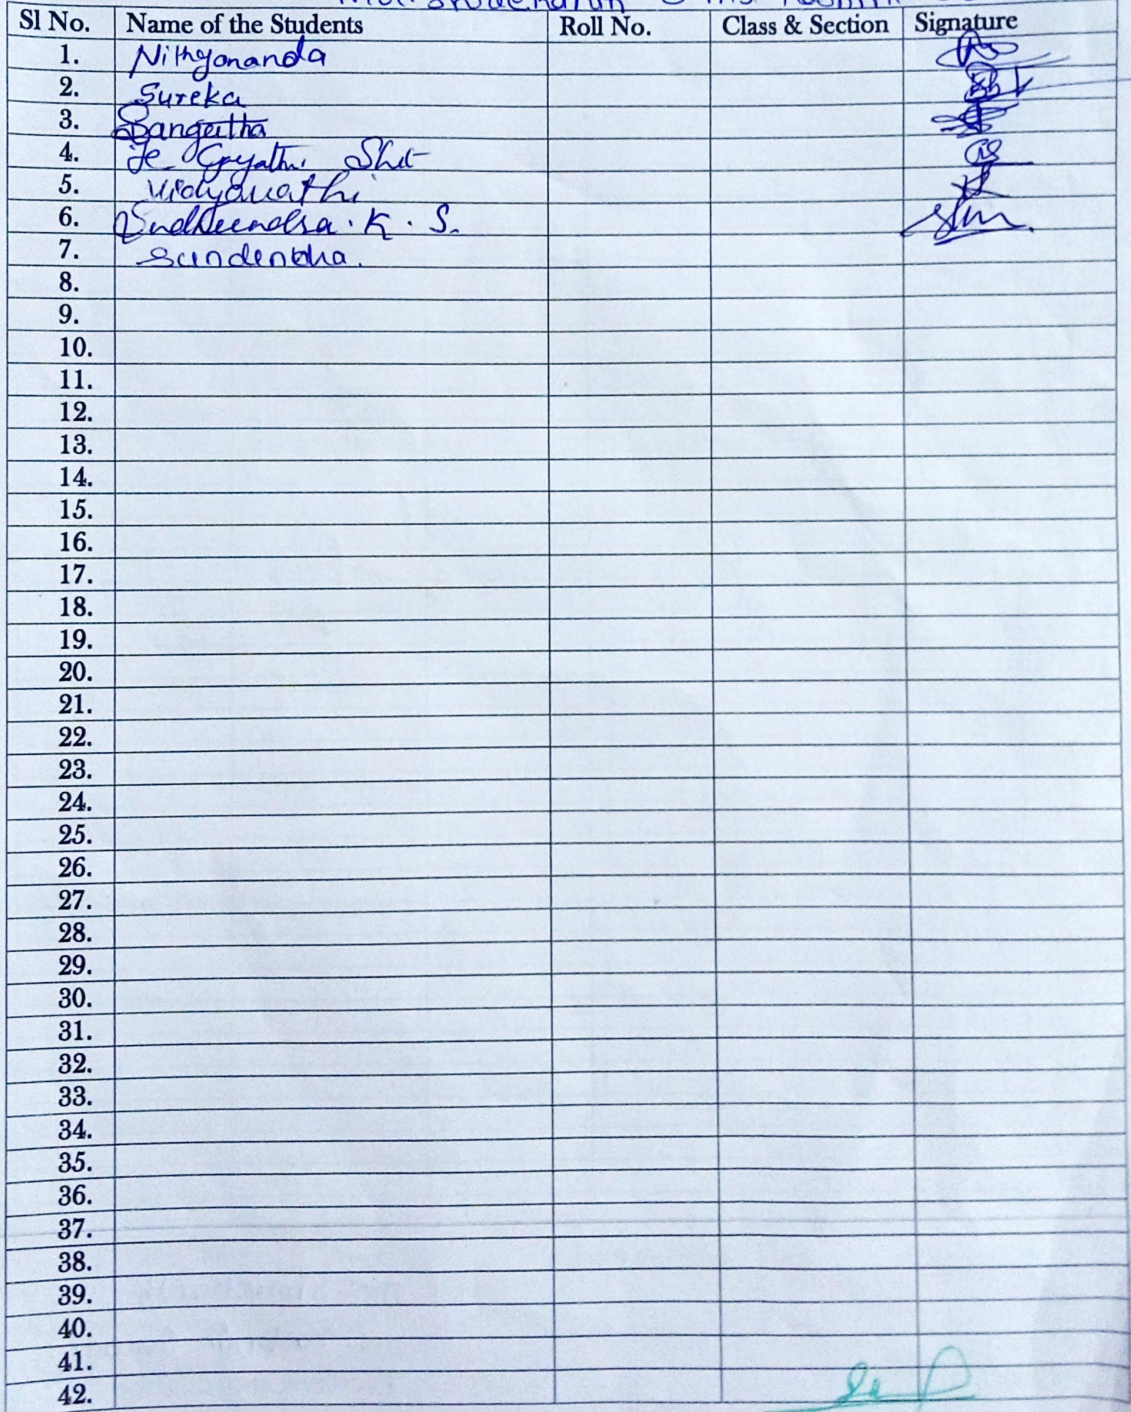 Sl No. Name of the Students Roll No. Class & Section Signature
1. Nithyananda
2. Sureka
3. Sangeetha
4.
5. Vidyavathi
6. K. S.
7.
8.
9.
10.
11.
12.
13.
14.
15.
16.
17.
18.
19.
20.
21.
22.
23.
24.
25.
26.
27.
28.
29.
30.
31.
32.
33.
34.
35.
36.
37.
38.
39.
40.
41.
42.